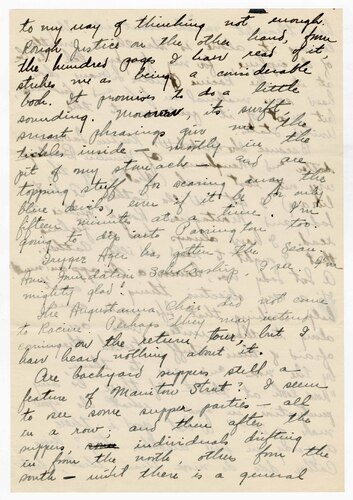 to my way of thinking not enough.
Rough Justice on the other hand, from
the hundred pages I have read of it,
strikes me as being a considerable
book. It promises to do a little
sounding. Moreover, its swift
smart phrasings give me the
tickles inside – mostly in the
pit of my stomache – and are
topping stuff for scaring away the
blue devils, even if it be for only
fifteen minutes at a time. I'm
going to dip into Parrington too.
Agee has gotten the
Am. Foundation Scholarship, I see. I'm
mighty glad!
The Augustana Choir did not come
to Racine. Perhaps they may
coming on the return tour, but I
have heard nothing about it.
Are backyard suppers still a
feature of Manitou Street? I seem
to see some supper parties – all
in a row: and then after the
suppers, individuals drifting
in from the north, others from the
south – until there is a general